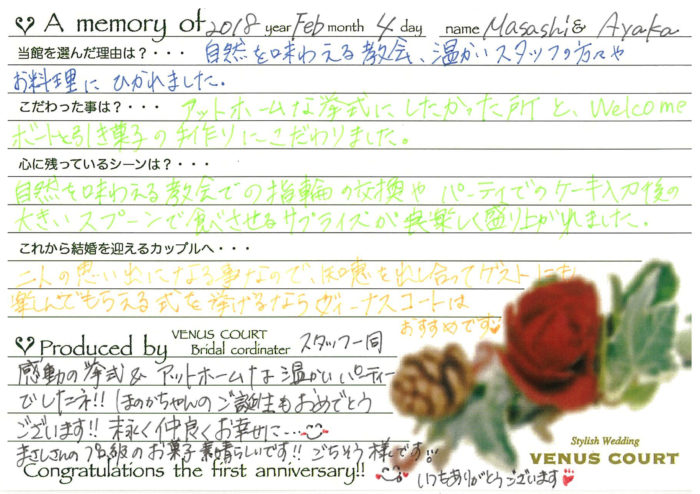 A memory of 2018 year Feb month 4 day name Masashi & Ayaka
当館を選んだ理由は?・・・ 自然を味わえる教会、温かいスタッフの方々や
お料理に ひかれました.
こだわった事は?・・・ アットホームな挙式にしたかった所 と、Welcome
ボードと引き菓子の手作りにこだわりました。
心に残っているシーンは?・・・
自然を味わえる教会での指輪の交換や パーティでのケーキ入刀後の
大きいスプーンで食べさせるサプライズが 楽しく盛り上がれました.
これから結婚を迎えるカップルへ・・・
二人の思い出になる事なので、知恵を出し合ってゲストにも
楽しんでもらえる式を挙げるならヴィーナスコートは
おすすめです
Produced by VENUS COURT Bridal cordinater スタッフ一同
感動の挙式& アットホームな温かいパーティー
でしたネ!! ほのかちゃんのご誕生もおめでとう
ございます!! 末永く仲良くお幸せに…
まさしさんのプロ級のお菓子素晴らしいです!! ごちそう様です!!
Congratulations the first anniversary!! いつもありがとうございます
Stylish Wedding
VENUS COURT